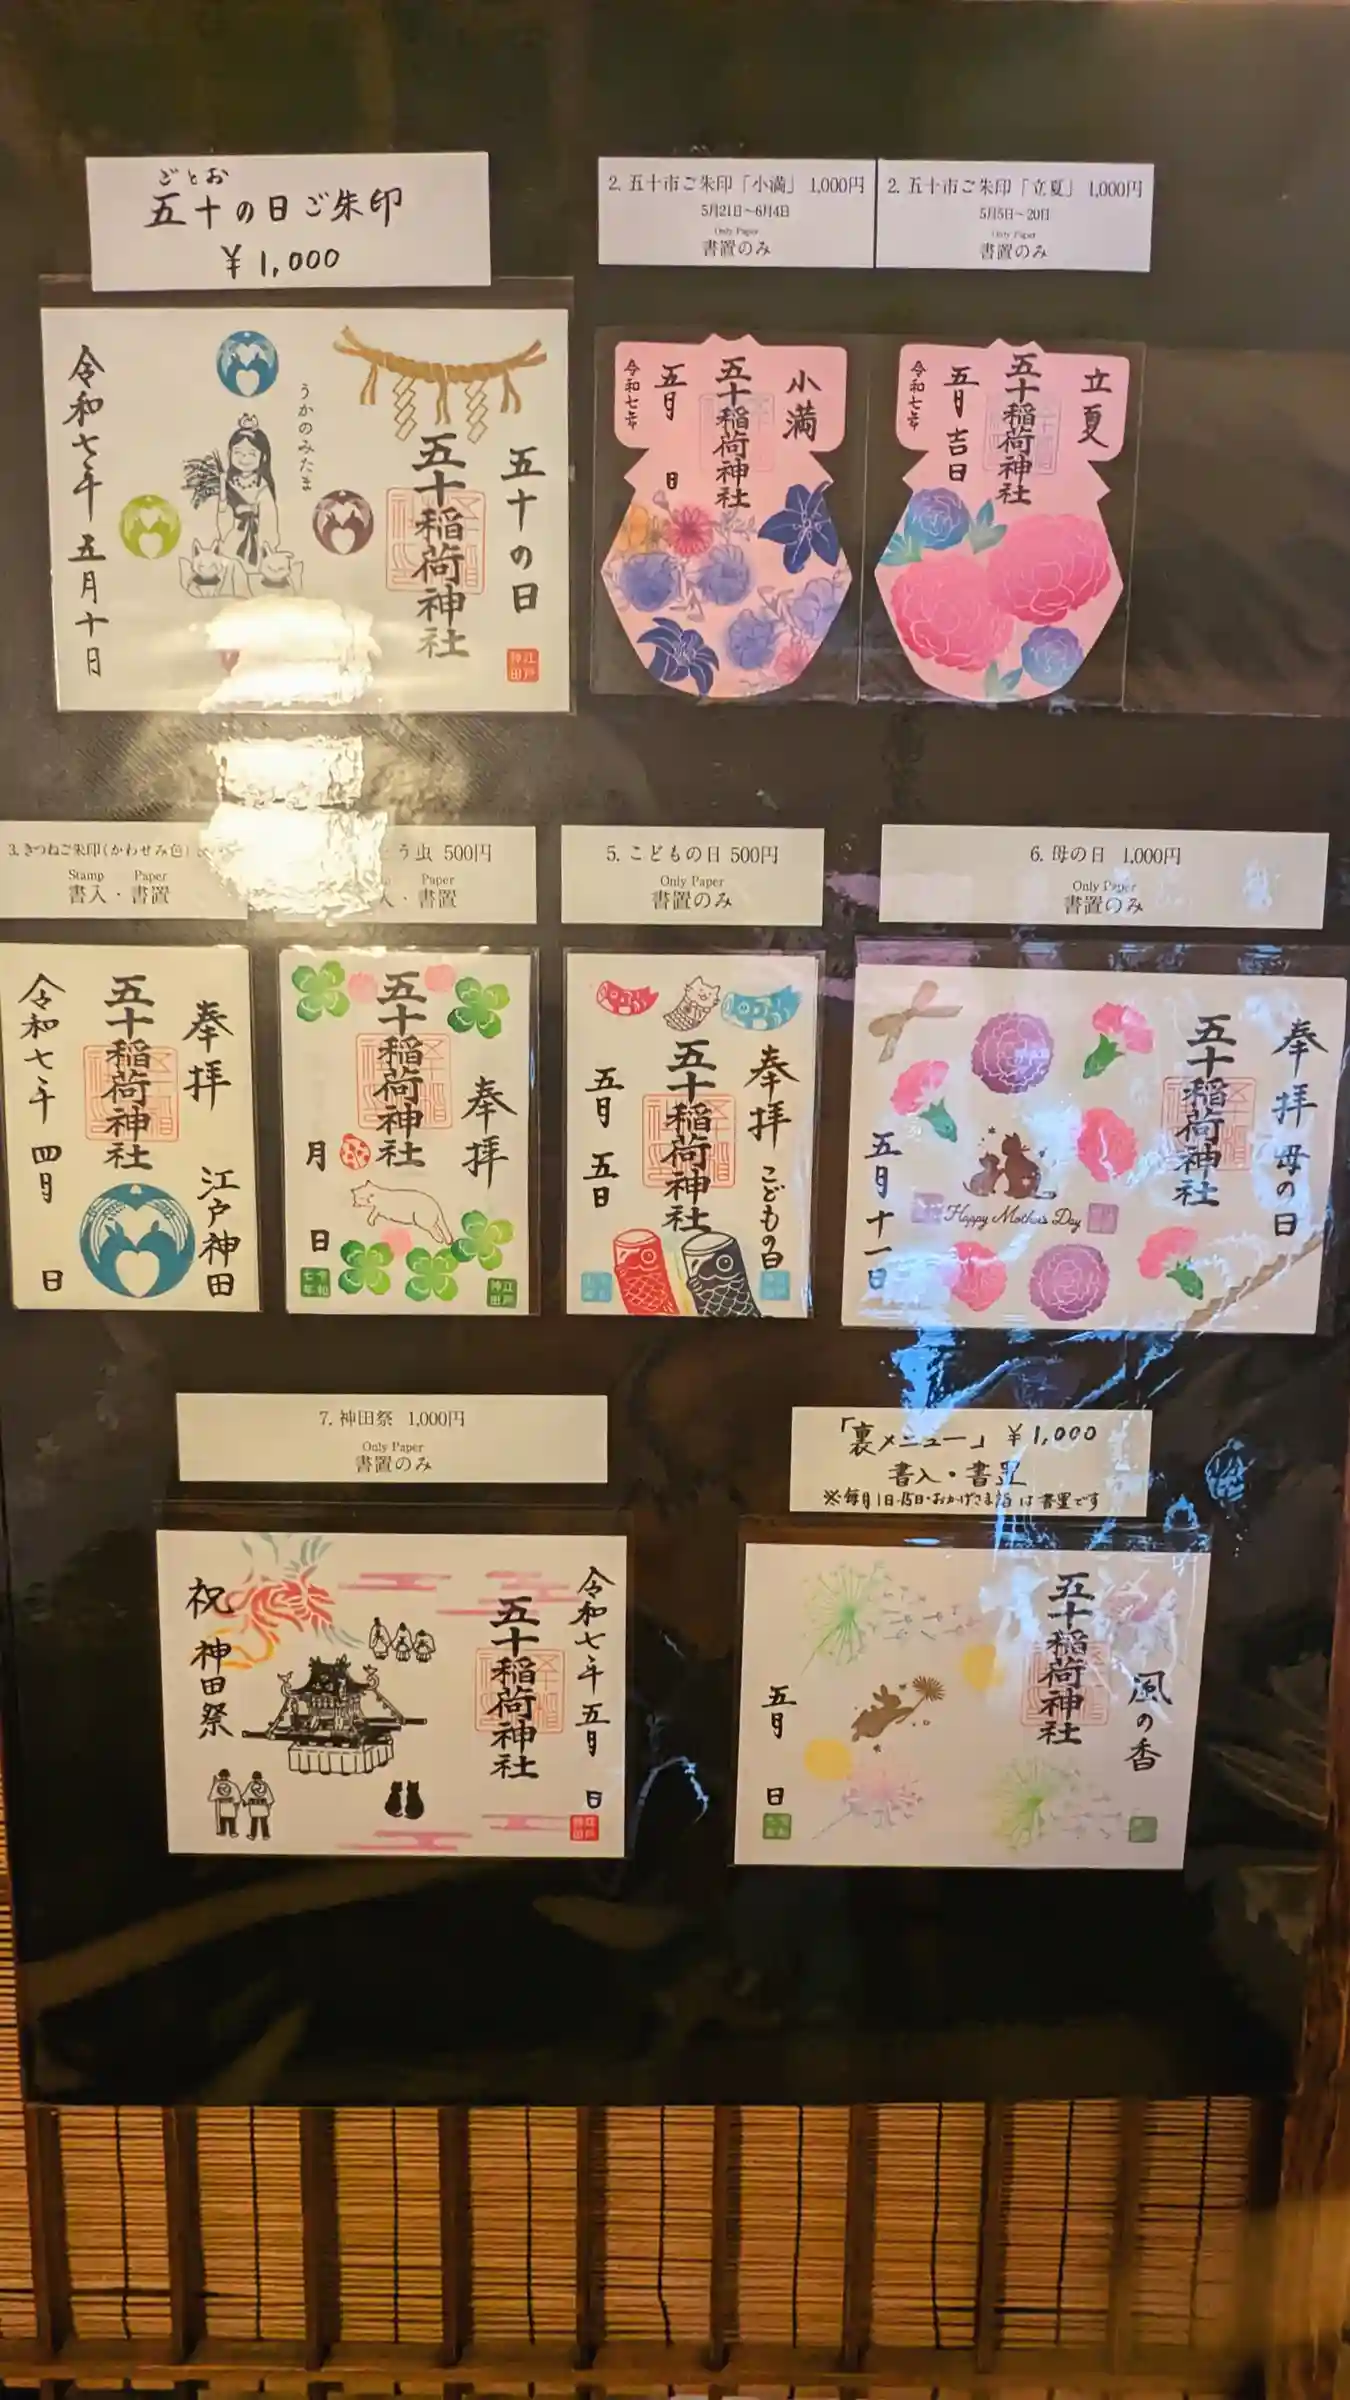 ごとお
五十の日ご朱印
¥1,000
2. 五十市ご朱印「小満」 1,000円
5月21日~6月4日
Only Paper
書置のみ
2. 五十市ご朱印「立夏」 1,000円
5月5日~20日
Only Paper
書置のみ
五十の日
五十稲荷神社
うかのみたま
令和七年 五月十日
江戸
神田
小満
五十稲荷神社
五月 日
令和七年
立夏
五十稲荷神社
五月 吉日
令和七年
3. きつねご朱印(かわせみ色)
Stamp Paper
書入・書置
う虫 500円
Paper
・書置
5. こどもの日 500円
Only Paper
書置のみ
6. 母の日 1,000円
Only Paper
書置のみ
奉拝 江戸神田
五十稲荷神社
令和七年 四月 日
奉拝
五十稲荷神社
月 日
令和
七年
江戸
神田
奉拝 こどもの日
五十稲荷神社
五月 五日
奉拝 母の日
五十稲荷神社
Happy Mother's Day
五月十一日
7. 神田祭 1,000円
Only Paper
書置のみ
「裏メニュー」 ¥1,000
書入・書置
※毎月1日・15日・おかげさま市は書置です
令和七年 五月 日
五十稲荷神社
祝 神田祭
江戸
神田
風の香
五十稲荷神社
五月 日